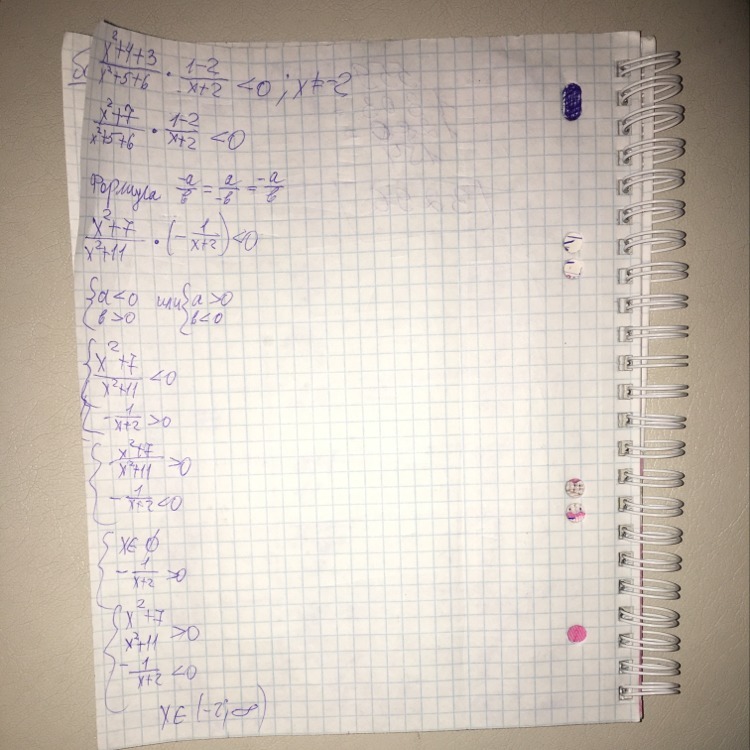 б) (x²+4+3)/(x²+5+6) · (1-2)/(x+2) <0 ; x≠-2
(x²+7)/(x²+5+6) · (1-2)/(x+2) <0
Формула -a/b = a/-b = -a/b
(x²+7)/(x²+11) · (-1/(x+2)) <0
{a<0 или {a>0
{b>0 {b<0
{(x²+7)/(x²+11) <0
{-1/(x+2) >0
{(x²+7)/(x²+11) >0
{-1/(x+2) <0
{x∈∅
{-1/(x+2) >0
{(x²+7)/(x²+11) >0
{-1/(x+2) <0
x∈(-2;∞)